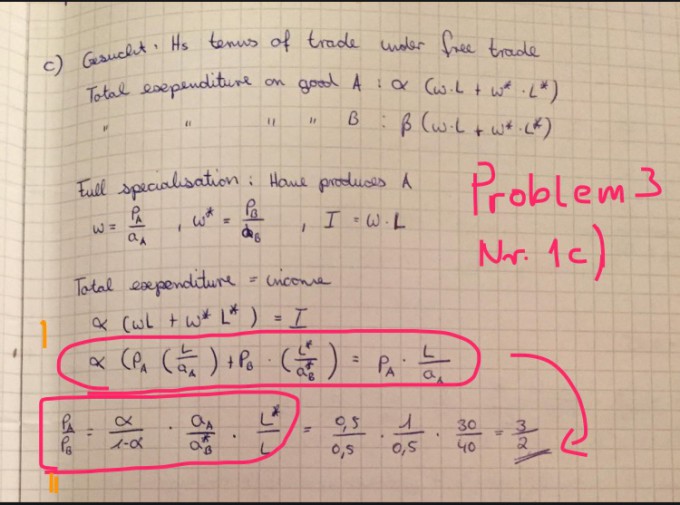 c) Gesucht: Hs terms of trade under free trade
Total expenditure on good A : α (w·L + w* · L*)
" " " " B : β (w·L + w* · L*)
Full specialisation : Home produces A
w = P_A/a_A , w* = P_B/a_B , I = w·L
Problem 3
Nr. 1c)
Total expenditure = income
α (wL + w* L*) = I
I
α (P_A (L/a_A) + P_B · (L*/a*_B) = P_A · L/a_A
P_A/P_B = α/1-α · a_A/a*_B · L*/L = 0,5/0,5 · 1/0,5 · 30/40 = 3/2
II